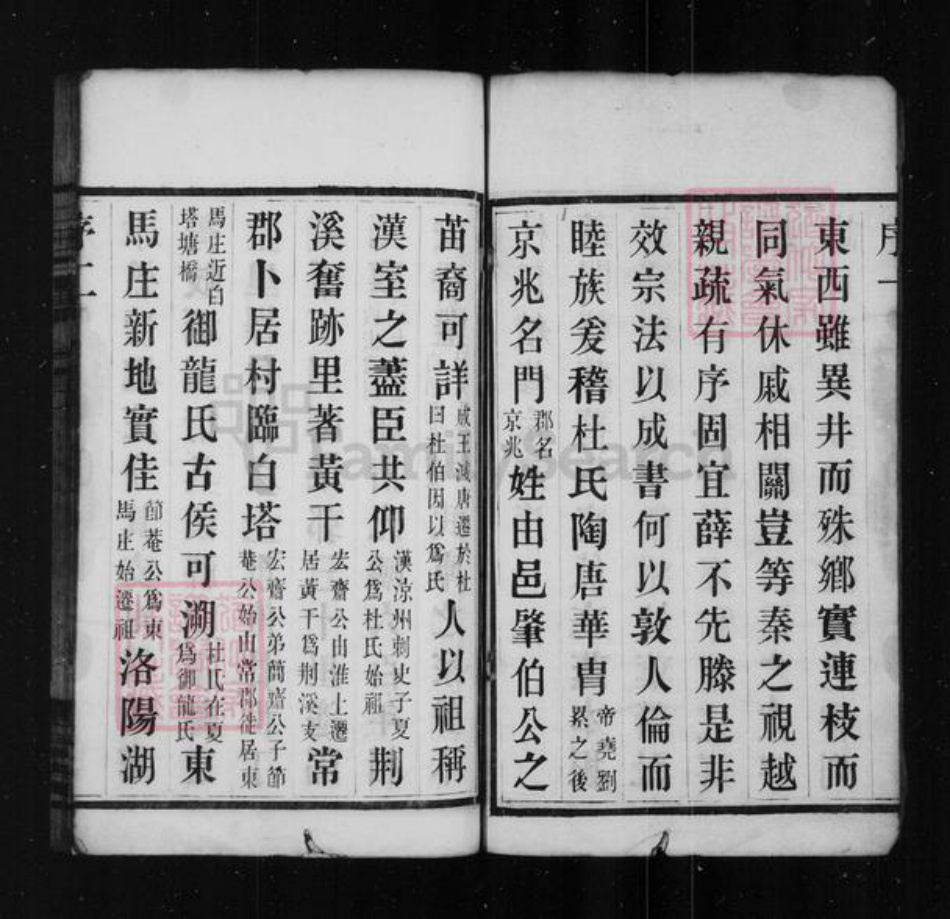 序一
東西雖異井而殊鄉實連枝而
同氣休戚相關豈等秦之視越
親疏有序固宜薛不先滕是非
效宗法以成書何以敦人倫而
睦族爰稽杜氏陶唐華胄帝堯劉累之後
京兆名門郡名京兆姓由邑肇伯公之
苗裔可詳成王滅唐遷於杜曰杜伯因以爲氏人以祖稱
漢室之藎臣共仰漢涼州刺史子夏公爲杜氏始祖荆
溪奮跡里著黃干宏齋公由淮上遷居黃干爲荆溪支常
郡卜居村臨白塔宏齋公弟簡齋公子節菴公始由常郡徙居東
馬庄近白塔塘橋御龍氏古侯可溯杜氏在夏爲御龍氏東
馬庄新地實佳節菴公爲東馬庄始遷祖洛陽湖
序二
FamilySearch